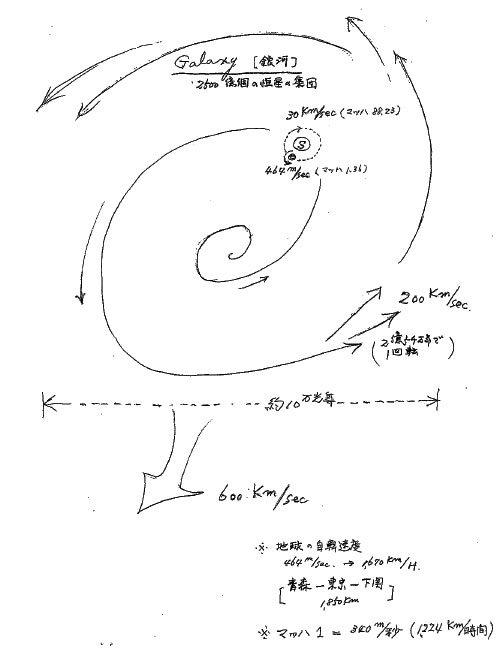 Galaxy [銀河]
2500億個の恒星の集団
30 Km/sec (マッハ 88.23)
S
464 m/sec (マッハ 1.36)
200 Km/sec.
1回転
約10万光年
600 Km/sec
※ 地球の自転速度
464 m/sec. → 1,670 Km/H.
[青森 — 東京 — 下関]
1,850 Km
※ マッハ 1 = 340 m/秒 (1,224 Km/時間)